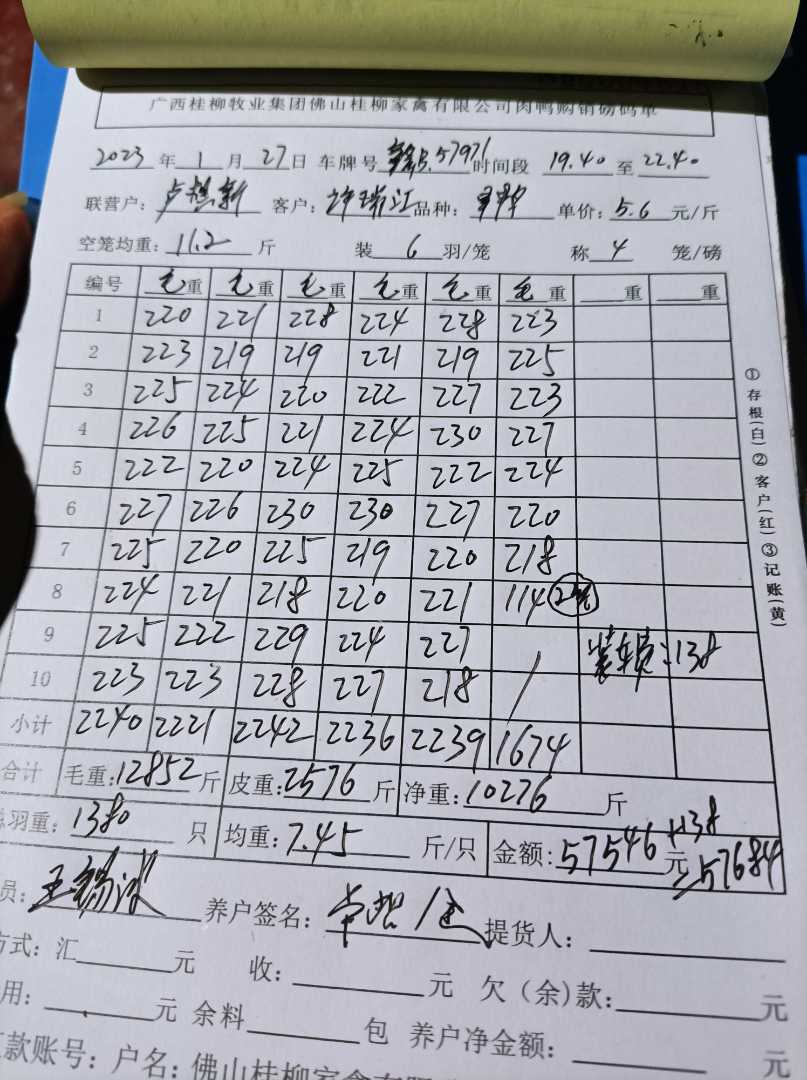 广西桂柳牧业集团佛山桂柳家禽有限公司肉鸭购销磅码单
2023 年 1 月 27 日 车牌号 57971 时间段 19.40 至 22.40
联营户: 客户: 许瑞江 品种: 单价: 5.6 元/斤
空笼均重: 11.2 斤 装 6 羽/笼 称 4 笼/磅
编号 毛重 毛重 毛重 毛重 毛重 毛重 重 重
1 220 221 228 224 228 223
2 223 219 219 221 219 225
3 225 224 220 222 227 223
4 226 225 221 224 230 227
5 222 220 224 225 222 224
6 227 226 230 230 227 220
7 225 220 225 219 220 218
8 224 221 218 220 221 114 2笼
9 225 222 229 224 227 装车员:138
10 223 223 228 227 218 /
小计 2240 2221 2242 2236 2239 1674
合计 毛重:12852 斤 皮重:2576 斤 净重:10276 斤
总羽重: 1380 只 均重: 7.45 斤/只 金额: 57546 元 +138 57684
员: 养户签名: 提货人:
方式: 汇 元 收: 元 欠(余)款: 元
用: 元 余料 包 养户净金额: 元
款账号: 户名: 佛山桂柳家禽有限
①存根(白)②客户(红)③记账(黄)